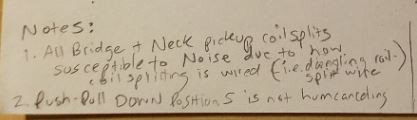 Notes:
1. All Bridge + Neck pickup coil splits
susceptible to Noise due to how
coil splitting is wired (i.e. dangling coil-)
split wire
2. Push-Pull DOWN Positions is not humcanceling